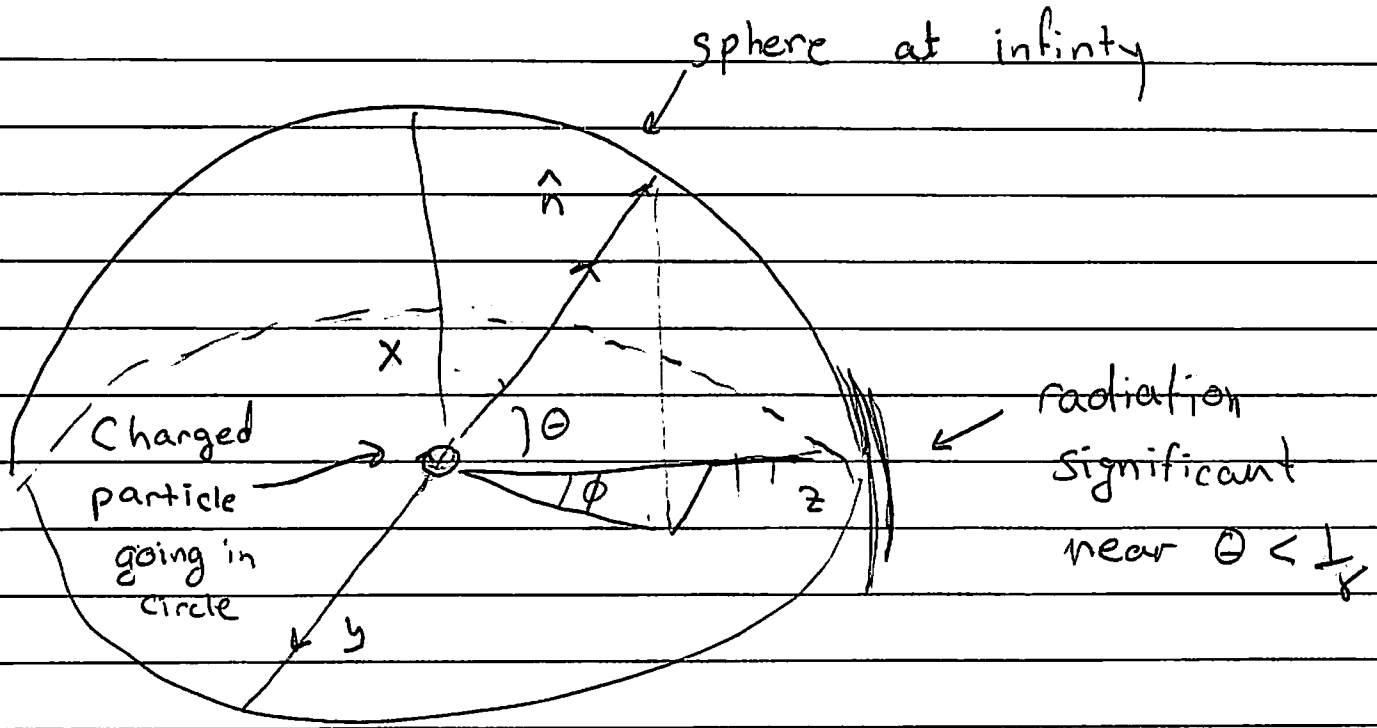 sphere at infinty
n̂
x
Charged
particle
going in
circle
θ
φ
z
y
radiation
significant
near θ < 1/γ